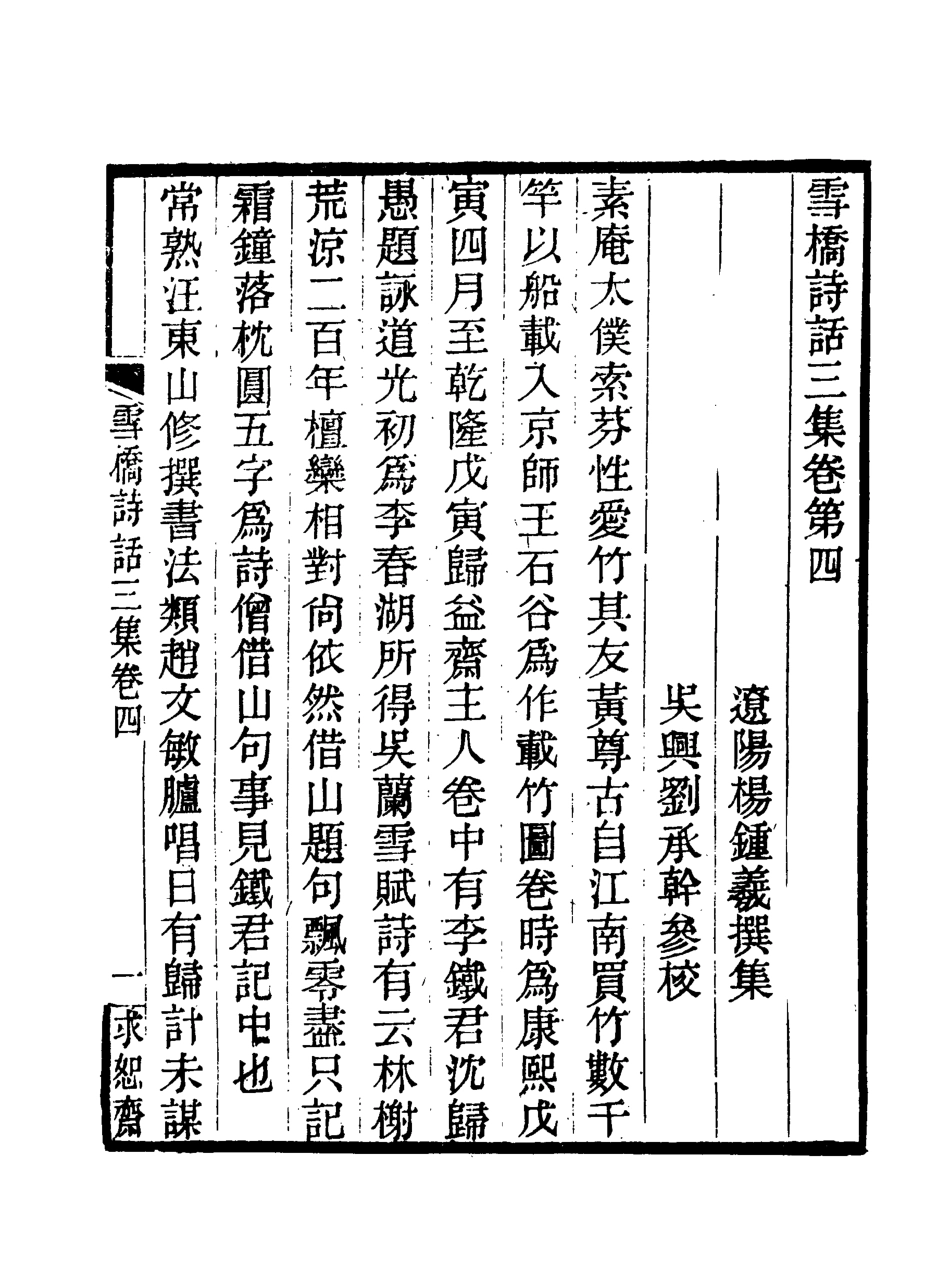 雪橋詩話三集卷第四
遼陽楊鍾羲撰集
吳興劉承幹參校
素庵太僕索芬性愛竹其友黃尊古自江南買竹數千
竿以船載入京師王石谷爲作載竹圖卷時爲康熙戊
寅四月至乾隆戊寅歸益齋主人卷中有李鐵君沈歸
愚題詠道光初爲李春湖所得吳蘭雪賦詩有云林榭
荒涼二百年檀欒相對尙依然借山題句飄零盡只記
霜鐘落枕圓五字爲詩僧借山句事見鐵君記中也
常熟汪東山修撰書法類趙文敏臚唱日有歸計未謀
雪橋詩話三集卷四
一
求恕齋